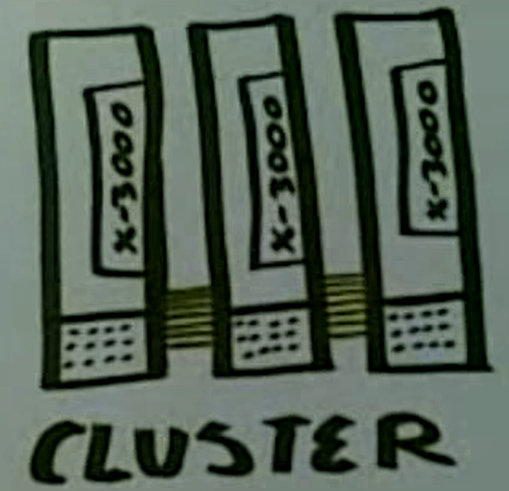 X-3000
X-3000
X-3000
CLUSTER